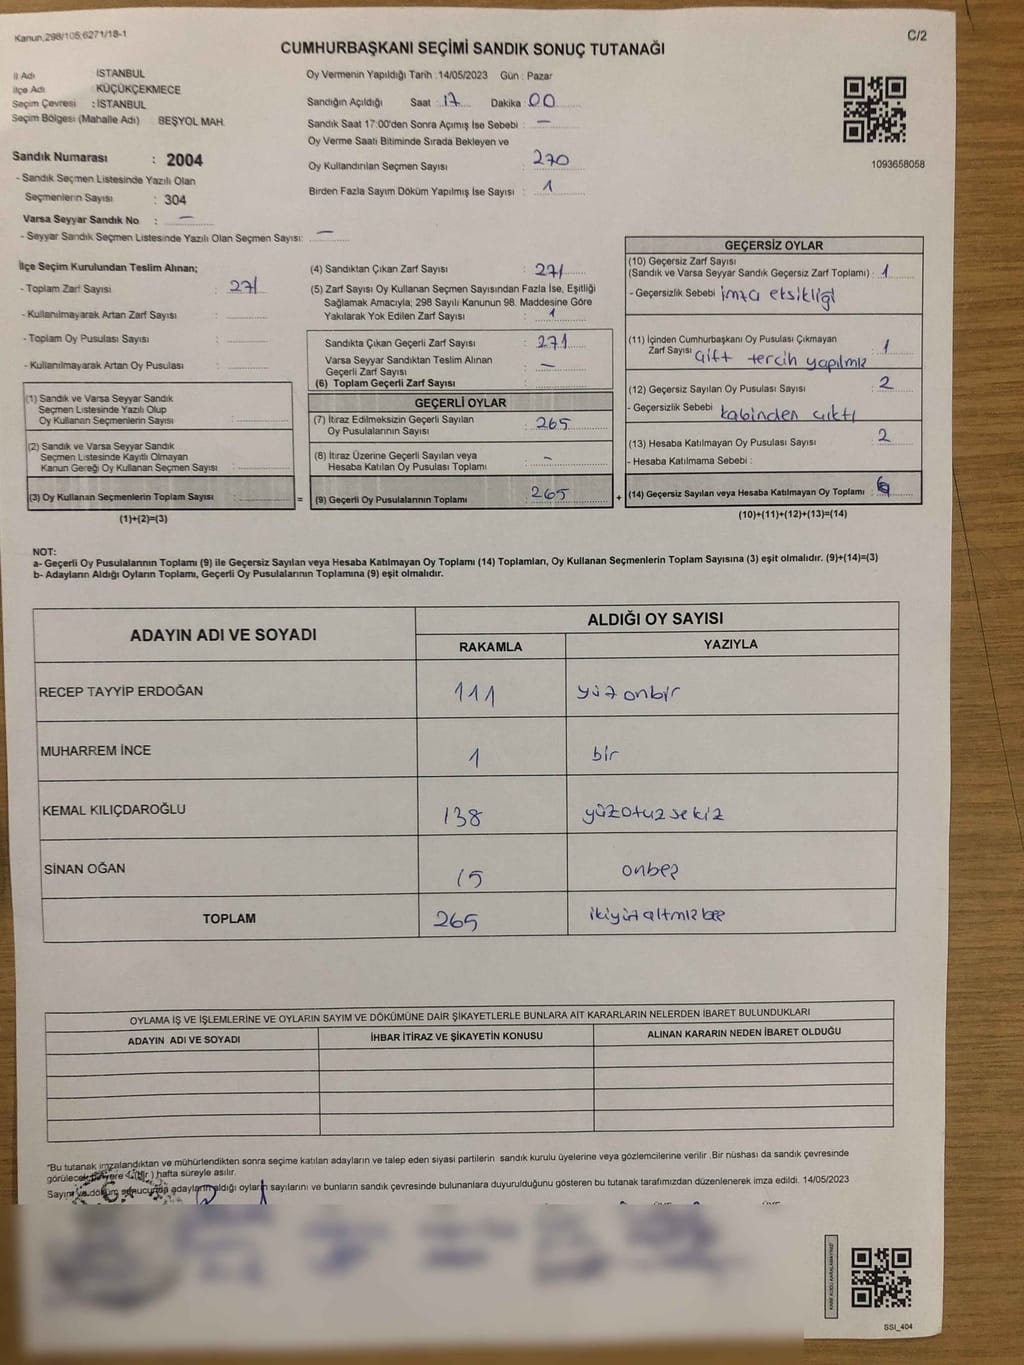 Kanun,298/105;6271/18-1
C/2
CUMHURBAŞKANI SEÇİMİ SANDIK SONUÇ TUTANAĞI
İl Adı : İSTANBUL
İlçe Adı : KÜÇÜKÇEKMECE
Seçim Çevresi : İSTANBUL
Seçim Bölgesi (Mahalle Adı) BEŞYOL MAH.
Sandık Numarası : 2004
- Sandık Seçmen Listesinde Yazılı Olan
Seçmenlerin Sayısı : 304
Varsa Seyyar Sandık No : —
- Seyyar Sandık Seçmen Listesinde Yazılı Olan Seçmen Sayısı: —
Oy Vermenin Yapıldığı Tarih : 14/05/2023 Gün : Pazar
Sandığın Açıldığı Saat : 17 Dakika : 00
Sandık Saat 17:00'den Sonra Açımış İse Sebebi : —
Oy Verme Saati Bitiminde Sırada Bekleyen ve
Oy Kullandırılan Seçmen Sayısı : 270
Birden Fazla Sayım Döküm Yapılmış İse Sayısı : 1
1093658058
İlçe Seçim Kurulundan Teslim Alınan;
- Toplam Zarf Sayısı : 271
- Kullanılmayarak Artan Zarf Sayısı :
- Toplam Oy Pusulası Sayısı :
- Kullanılmayarak Artan Oy Pusulası :
(1) Sandık ve Varsa Seyyar Sandık
Seçmen Listesinde Yazılı Olup
Oy Kullanan Seçmenlerin Sayısı :
(2) Sandık ve Varsa Seyyar Sandık
Seçmen Listesinde Kayıtlı Olmayan
Kanun Gereği Oy Kullanan Seçmen Sayısı :
(3) Oy Kullanan Seçmenlerin Toplam Sayısı :
(1)+(2)=(3)
(4) Sandıktan Çıkan Zarf Sayısı : 271
(5) Zarf Sayısı Oy Kullanan Seçmen Sayısından Fazla İse, Eşitliği
Sağlamak Amacıyla; 298 Sayılı Kanunun 98. Maddesine Göre
Yakılarak Yok Edilen Zarf Sayısı : 1
Sandıkta Çıkan Geçerli Zarf Sayısı : 271
Varsa Seyyar Sandıktan Teslim Alınan
Geçerli Zarf Sayısı : —
(6) Toplam Geçerli Zarf Sayısı :
GEÇERLİ OYLAR
(7) İtiraz Edilmeksizin Geçerli Sayılan
Oy Pusulalarının Sayısı : 265
(8) İtiraz Üzerine Geçerli Sayılan veya
Hesaba Katılan Oy Pusulası Toplamı : -
= (9) Geçerli Oy Pusulalarının Toplamı : 265
GEÇERSİZ OYLAR
(10) Geçersiz Zarf Sayısı
(Sandık ve Varsa Seyyar Sandık Geçersiz Zarf Toplamı) : 1
- Geçersizlik Sebebi imza eksikliği
(11) İçinden Cumhurbaşkanı Oy Pusulası Çıkmayan
Zarf Sayısı çift tercih yapılmış : 1
(12) Geçersiz Sayılan Oy Pusulası Sayısı : 2
- Geçersizlik Sebebi kabinden çıktı
(13) Hesaba Katılmayan Oy Pusulası Sayısı : 2
- Hesaba Katılmama Sebebi :
+ (14) Geçersiz Sayılan veya Hesaba Katılmayan Oy Toplamı : 6
(10)+(11)+(12)+(13)=(14)
NOT:
a- Geçerli Oy Pusulalarının Toplamı (9) ile Geçersiz Sayılan veya Hesaba Katılmayan Oy Toplamı (14) Toplamları, Oy Kullanan Seçmenlerin Toplam Sayısına (3) eşit olmalıdır. (9)+(14)=(3)
b- Adayların Aldığı Oyların Toplamı, Geçerli Oy Pusulalarının Toplamına (9) eşit olmalıdır.
ADAYIN ADI VE SOYADI
ALDIĞI OY SAYISI
RAKAMLA YAZIYLA
RECEP TAYYİP ERDOĞAN 111 yüz onbir
MUHARREM İNCE 1 bir
KEMAL KILIÇDAROĞLU 138 yüzotuzsekiz
SİNAN OĞAN 15 onbeş
TOPLAM 265 ikiyüzaltmızbeş
OYLAMA İŞ VE İŞLEMLERİNE VE OYLARIN SAYIM VE DÖKÜMÜNE DAİR ŞİKAYETLERLE BUNLARA AİT KARARLARIN NELERDEN İBARET BULUNDUKLARI
ADAYIN ADI VE SOYADI İHBAR İTİRAZ VE ŞİKAYETİN KONUSU ALINAN KARARIN NEDEN İBARET OLDUĞU
"Bu tutanak imzalandıktan ve mühürlendikten sonra seçime katılan adayların ve talep eden siyasi partilerin sandık kurulu üyelerine veya gözlemcilerine verilir .Bir nüshası da sandık çevresinde
hafta süreyle asılır.
Sayım ve döküm sonucunda adayların aldığı oyların sayılarını ve bunların sandık çevresinde bulunanlara duyurulduğunu gösteren bu tutanak tarafımızdan düzenlenerek imza edildi. 14/05/2023
SSI_404